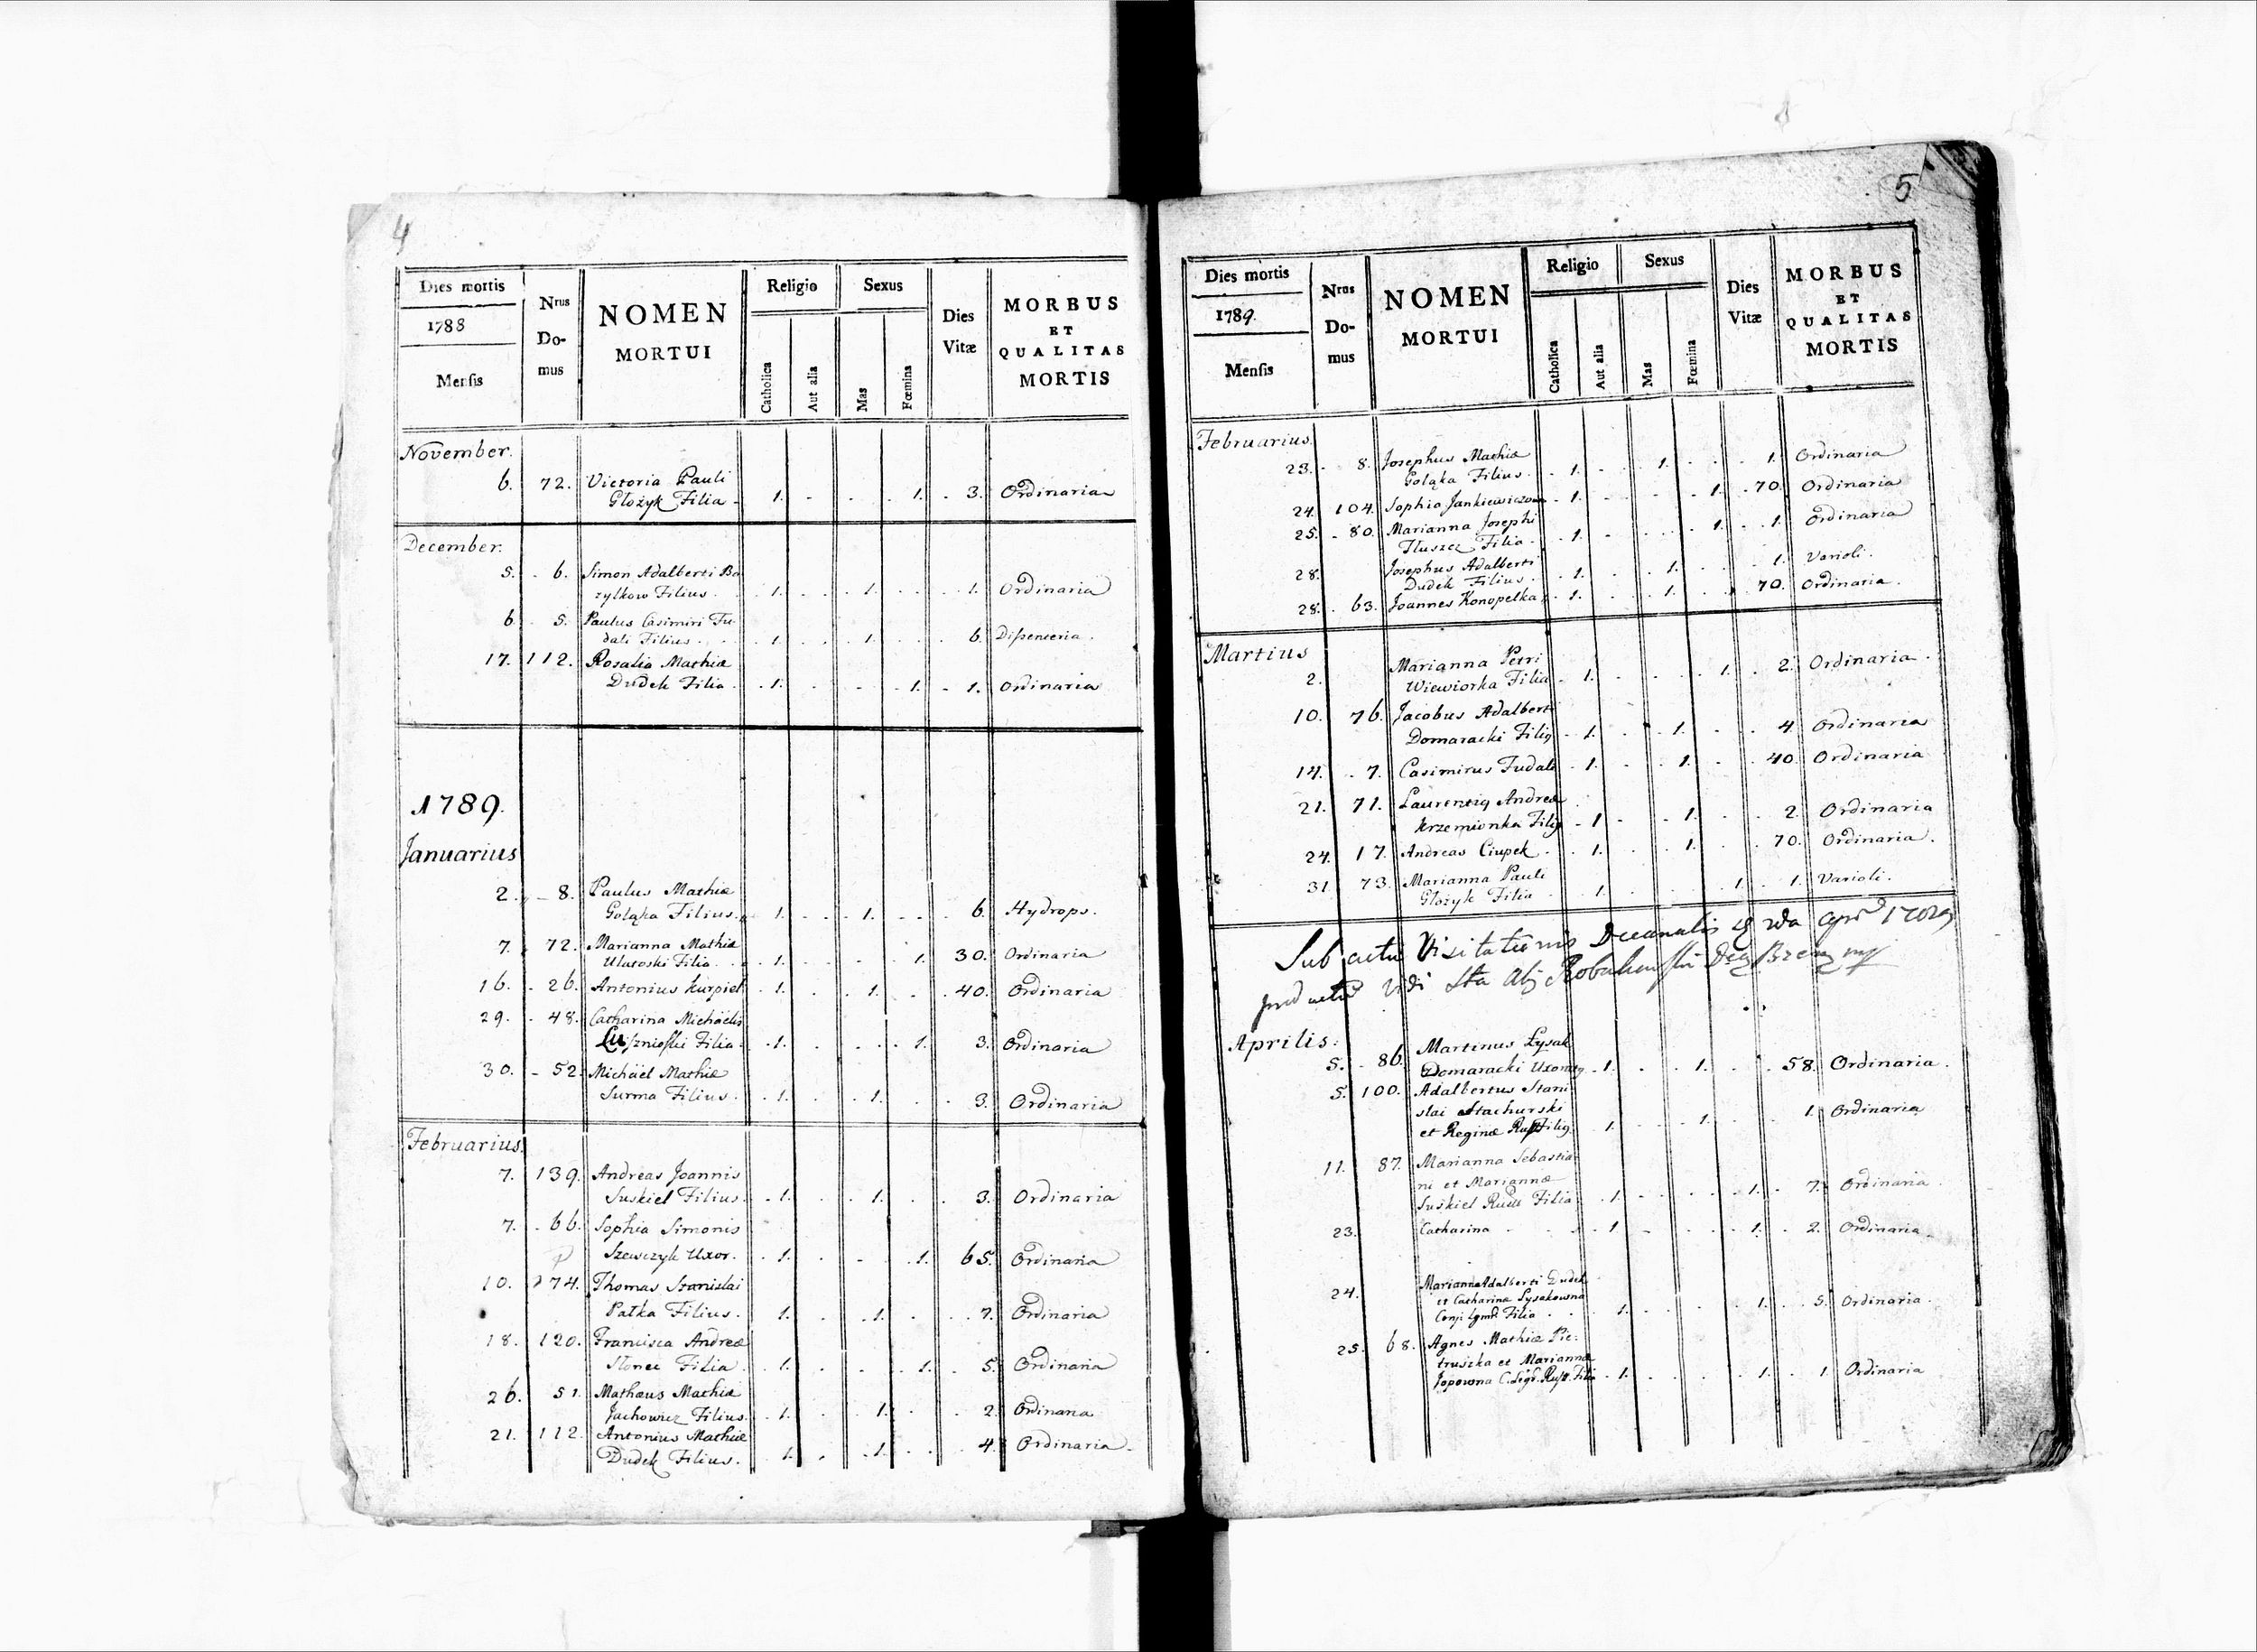 4
Dies mortis
1788
Mensis
Nrus
Do-
mus
NOMEN
MORTUI
Religio
Catholica
Aut alia
Sexus
Mas
Fœmina
Dies
Vitæ
MORBUS
ET
QUALITAS
MORTIS
November.
6. 72. Victoria Pauli
Głożyk Filia - 1. - . . 1. . 3. Ordinaria
December.
5. . 6. Simon Adalberti Ba
zylkow Filius . 1. . . 1. . . . 1. Ordinaria
6. . 5. Paulus Casimiri Fu-
dali Filius . . . 1. . . 1. . . . 6. Dissenteria .
17. 112. Rosalia Mathiæ
Dudek Filia . . 1. . . - . 1. - 1. Ordinaria
1789.
Januarius
2. - 8. Paulus Mathiæ
Gołąka Filius. 1. . . 1. . . . 6. Hydrops.
7. 72. Marianna Mathiæ
Ulatoski Filia . . 1. . . . 1. 30. Ordinaria
16. . 26. Antonius Kurpiel . 1. . . 1. . . 40. Ordinaria
29. . 48. Catharina Michäelis
Filia . . 1. . . . . 1. 3. Ordinaria
30. - 52. Michäel Mathiæ
Surma Filius . . 1. . . 1. . . . 3. Ordinaria
Februarius.
7. 139. Andreas Joannis
Suskiel Filius . . 1. . . 1. . . . 3. Ordinaria
7. . 66. Sophia Simonis
Szewczyk Uxor. . 1. . . - . 1. 65. Ordinaria
10. 174. Thomas Stanislai
Pałka Filius . 1. . . 1. . . . 7. Ordinaria
18. 120. Francisca Andreæ
Słonec Filia . 1. . . . 1. . 5. Ordinaria
26. 51. Mathæus Mathiæ
Jachowicz Filius. . 1. . . 1. . . . 2. Ordinaria
21. 112. Antonius Mathiæ
Dudek Filius. 1. . . 1. . . . 4. Ordinaria .
5
Dies mortis
1789.
Mensis
Nrus
Do-
mus
NOMEN
MORTUI
Religio
Catholica
Aut alia
Sexus
Mas
Fœmina
Dies
Vitæ
MORBUS
ET
QUALITAS
MORTIS
Februarius.
23. - 8. Josephus Mathiæ
Gołąka Filius . . 1. . . 1. . . . 1. Ordinaria
24. 104. Sophia Jankiewiczowa . 1. . . . 1. . 70. Ordinaria
25. . 80. Marianna Josephi
Tłuszcz Filia . . 1. . . . 1. . 1. Ordinaria
28. Josephus Adalberti
Dudek Filius . . 1. . . 1. . . . 1. Varioli.
28. . 63. Joannes Konopelka . 1. . . 1. . . 70. Ordinaria .
Martius
2. Marianna Petri
Wiewiorka Filia . 1. . . . 1. . 2. Ordinaria .
10. 76. Jacobus Adalberti
Domaracki Filiꝯ . 1. . . 1. . . 4. Ordinaria
14. . 7. Casimirus Fudali . 1. . . 1. . . 40. Ordinaria
21. 71. Laurentiꝯ Andreæ
Krzemionka Filiꝯ - 1 - . 1. . . 2. Ordinaria
24. 17. Andreas Ciupek . . 1. . . 1. . . 70. Ordinaria .
31. 73. Marianna Pauli
Głożyk Filia . 1. . . . 1. . 1. Varioli .
Sub actu Visitationis Decanalis
vidi
Aprilis:
5. - 86. Martinus Łysak
Domaracki . 1. . . 1. . . 58. Ordinaria .
5. 100. Adalbertus Stani
slai Stachurski
et Reginæ Filiꝯ 1. . . 1. . . 1. Ordinaria
11. 87. Marianna Sebastia-
ni et Mariannæ
Suskiel Filia . 1. . . . 1. . 7. Ordinaria .
23. Catharina . . . 1 - . . 1. . 2. Ordinaria .
24. Marianna Adalberti Dudek
et Catharina Łysakowna
Filia . . 1. . . . 1. . 5. Ordinaria .
25. 68. Agnes Mathiæ Pie-
truszka et Marianna
Filia . 1. . . . 1. . 1. Ordinaria